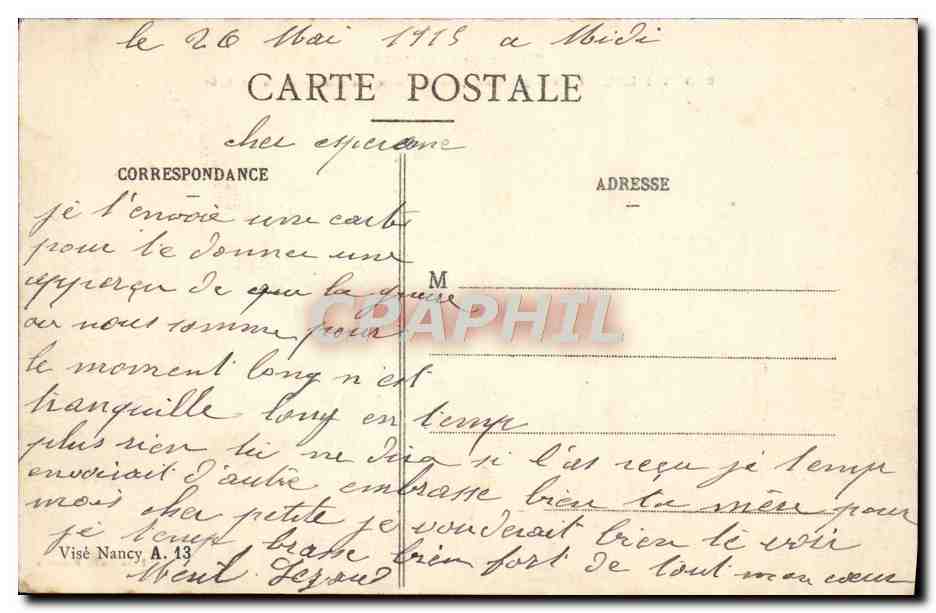 le 26 Mai 1915 a Midi
CARTE POSTALE
cher
CORRESPONDANCE
ADRESSE
je t'envoie une carte
pour te donner une
apperçu de la guerre
M
ou nous somme pour
CPAPHIL
le moment long n'est
tranquille long en temp
plus rien tu ne dira si t'as reçu je temp
envoirait d'autre embrasse bien ta mère pour
mois cher petite je vouderait bien te voir
je temp brasse bien fort de tout mon cœur
Visé Nancy A. 13